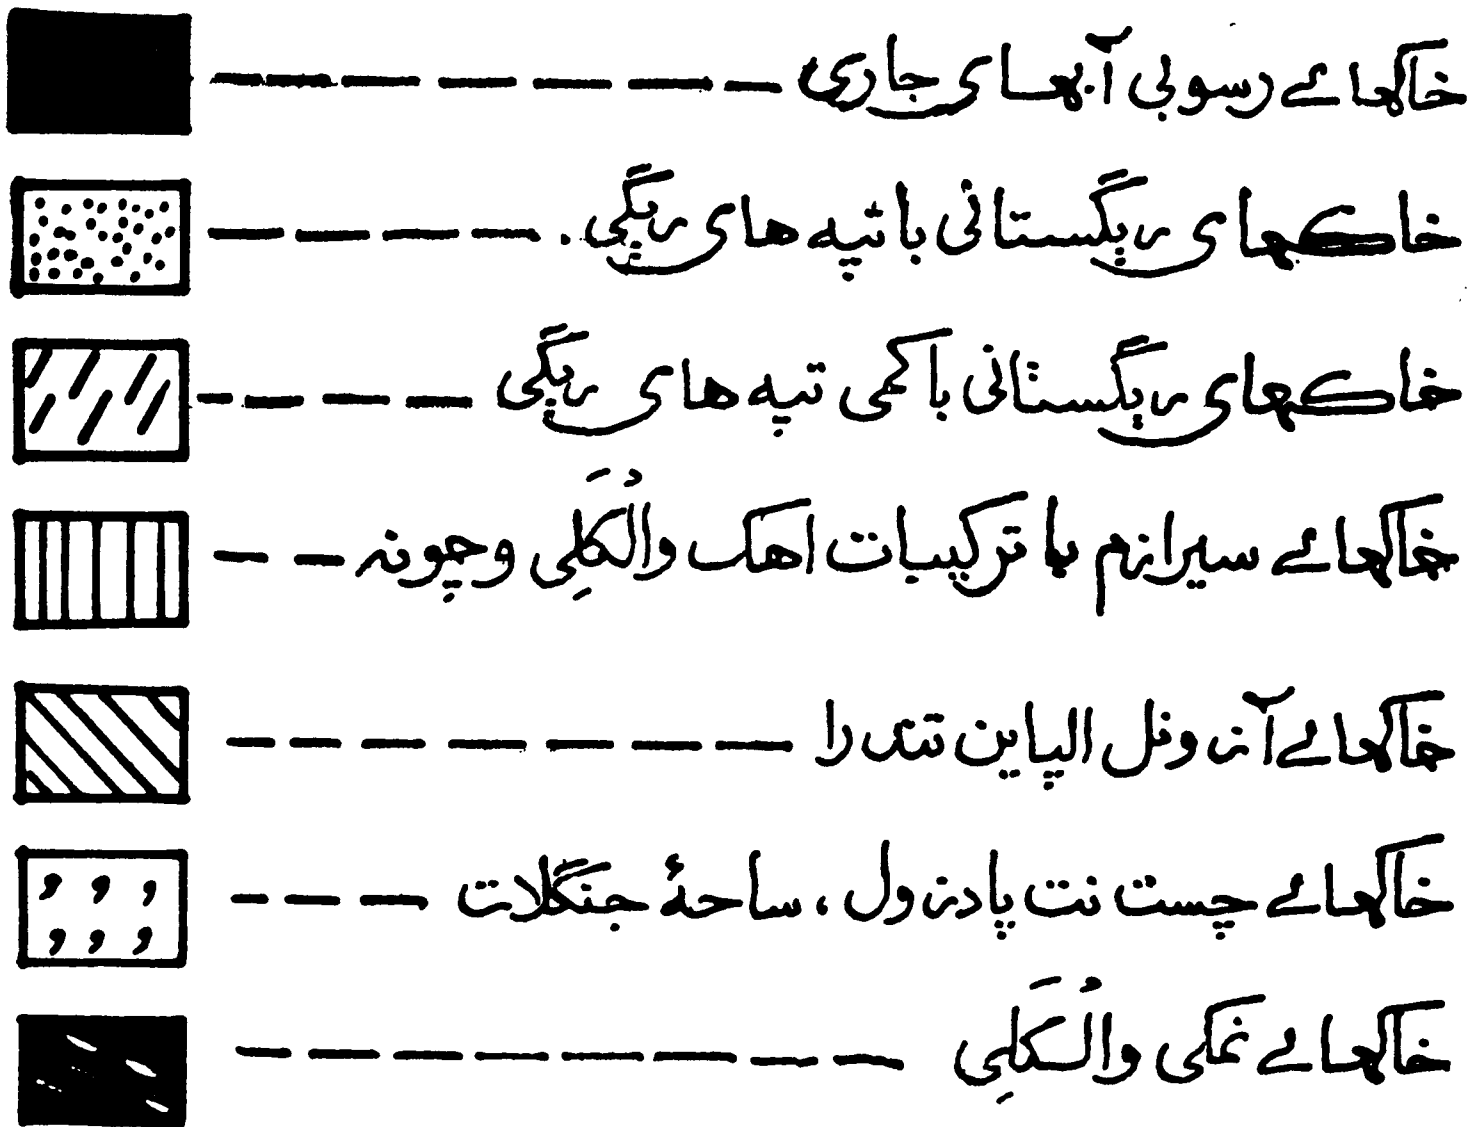 خاکهائے رسوبی آبهای جاری
خاکهای ریگستانی با تپه های ریگی.
خاکهای ریگستانی با کمی تپه های ریگی
خاکهائے سیرازم با ترکیبات اهک والُکَلِی و چونه
خاکهائے آنزونل الپاین تندرا
خاکهائے چست نت پادزول، ساحۀ جنگلات
خاکهائے نمکی والُکَلِی